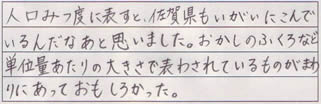 人口みつ度に表すと、佐賀県もいがいにこんで
いるんだなあと思いました。おかしのふくろなど
単位量あたりの大きさで表わされているものがまわ
りにあっておもしろかった。